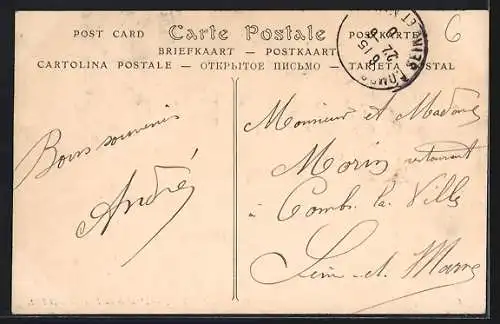 POST CARD Carte Postale POSTKARTE
BRIEFKAART — POSTKAART
CARTOLINA POSTALE — ОТКРЫТОЕ ПИСЬМО — TARJETA POSTAL
6
6 15
27
Bons souvenirs
André
Monsieur et Madame
Morin restaurant
à Combs la Ville
Seine et Marne